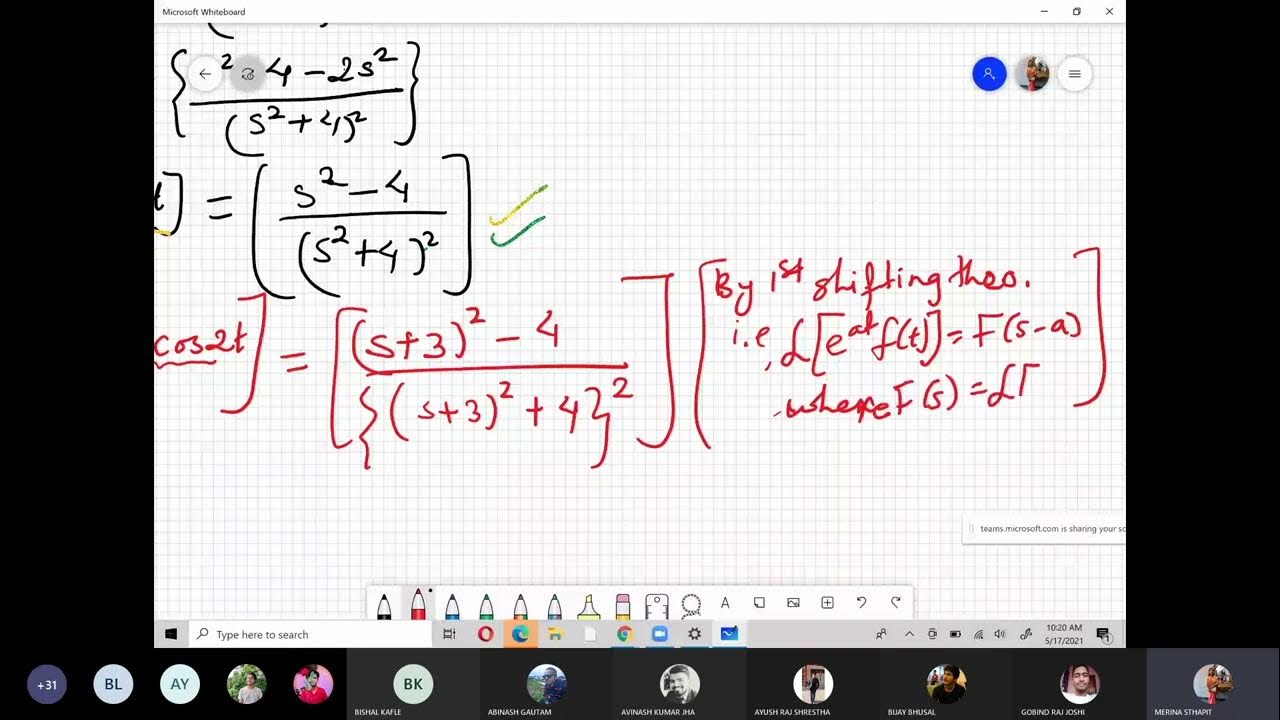 Microsoft Whiteboard
{² 4 - 2s² / (s² + 4)²}
t] = [s² - 4 / (s² + 4)²]
cos2t] = [(s+3)² - 4 / {(s+3)² + 4}²]
[By 1st shifting theo.
i.e, £[e^at f(t)] = F(s-a)
where F(s) = £[
teams.microsoft.com is sharing your sc
A
Type here to search
10:20 AM
5/17/2021
+31
BL
AY
BK
BISHAL KAFLE
ABINASH GAUTAM
AVINASH KUMAR JHA
AYUSH RAJ SHRESTHA
BIJAY BHUSAL
GOBIND RAJ JOSHI
MERINA STHAPIT